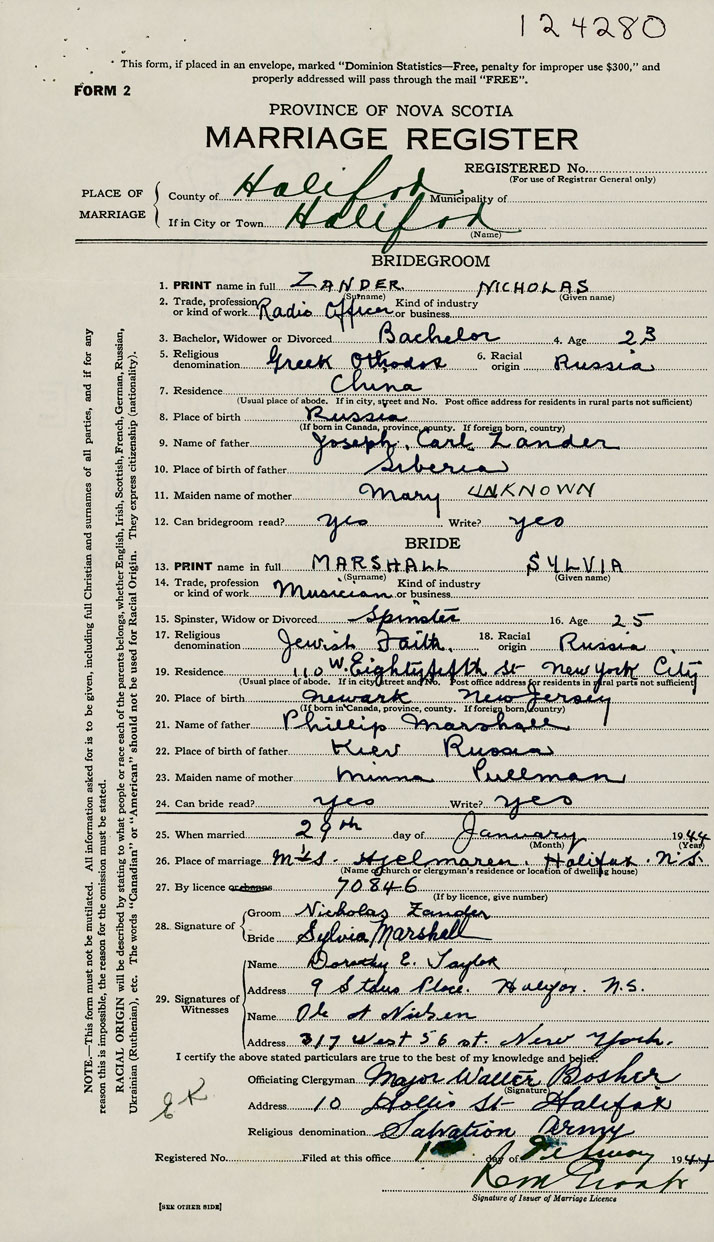 124280
This form, if placed in an envelope, marked “Dominion Statistics—Free, penalty for improper use $300,” and
properly addressed will pass through the mail “FREE”.
FORM 2
PROVINCE OF NOVA SCOTIA
MARRIAGE REGISTER
REGISTERED No.
(For use of Registrar General only)
PLACE OF MARRIAGE
County of Halifax Municipality of
If in City or Town Halifax
(Name)
BRIDEGROOM
1. PRINT name in full ZANDER NICHOLAS
(Surname) (Given name)
2. Trade, profession or kind of work Radio Officer Kind of industry or business
3. Bachelor, Widower or Divorced Bachelor 4. Age 23
5. Religious denomination Greek Othodox 6. Racial origin Russia
7. Residence China
(Usual place of abode. If in city, street and No. Post office address for residents in rural parts not sufficient)
8. Place of birth Russia
(If born in Canada, province, county. If foreign born, country)
9. Name of father Joseph Carl Zander
10. Place of birth of father Siberia
11. Maiden name of mother Mary UNKNOWN
12. Can bridegroom read? yes Write? yes
BRIDE
13. PRINT name in full MARSHALL SYLVIA
(Surname) (Given name)
14. Trade, profession or kind of work Musician Kind of industry or business
15. Spinster, Widow or Divorced Spinster 16. Age 25
17. Religious denomination Jewish Faith. 18. Racial origin Russia
19. Residence 110 W. Eightyfifth St New York City
(Usual place of abode. If in city, street and No. Post office address for residents in rural parts not sufficient)
20. Place of birth Newark New Jersey
(If born in Canada, province, county. If foreign born, country)
21. Name of father Phillip Marshall
22. Place of birth of father Kiev Russia
23. Maiden name of mother Minna Pullman
24. Can bride read? yes Write? yes
25. When married 29th day of January 1944
(Month) (Year)
26. Place of marriage M/S. Hjelmaren. Halifax N.S.
(Name of church or clergyman's residence or location of dwelling house)
27. By licence or banns 70846
(If by licence, give number)
28. Signature of
Groom Nicholas Zander
Bride Sylvia Marshall
29. Signatures of Witnesses
Name Dorothy E. Taylor
Address 9 Place. Halifax. N.S.
Name Ole Nielsen
Address 317 West 56 st. New York.
I certify the above stated particulars are true to the best of my knowledge and belief.
Officiating Clergyman Major Walter Bosher
(Signature)
Address 10 Hollis St Halifax
Religious denomination Salvation Army
Registered No. Filed at this office day of 1944
Signature of Issuer of Marriage Licence
[SEE OTHER SIDE]
NOTE.—This form must not be mutilated. All information asked for is to be given, including full Christian and surnames of all parties, and if for any
reason this is impossible, the reason for the omission must be stated.
RACIAL ORIGIN will be described by stating to what people or race each of the parents belongs, whether English, Irish, Scottish, French, German, Russian,
Ukrainian (Ruthenian), etc. The words “Canadian” or “American” should not be used for Racial Origin. They express citizenship (nationality).